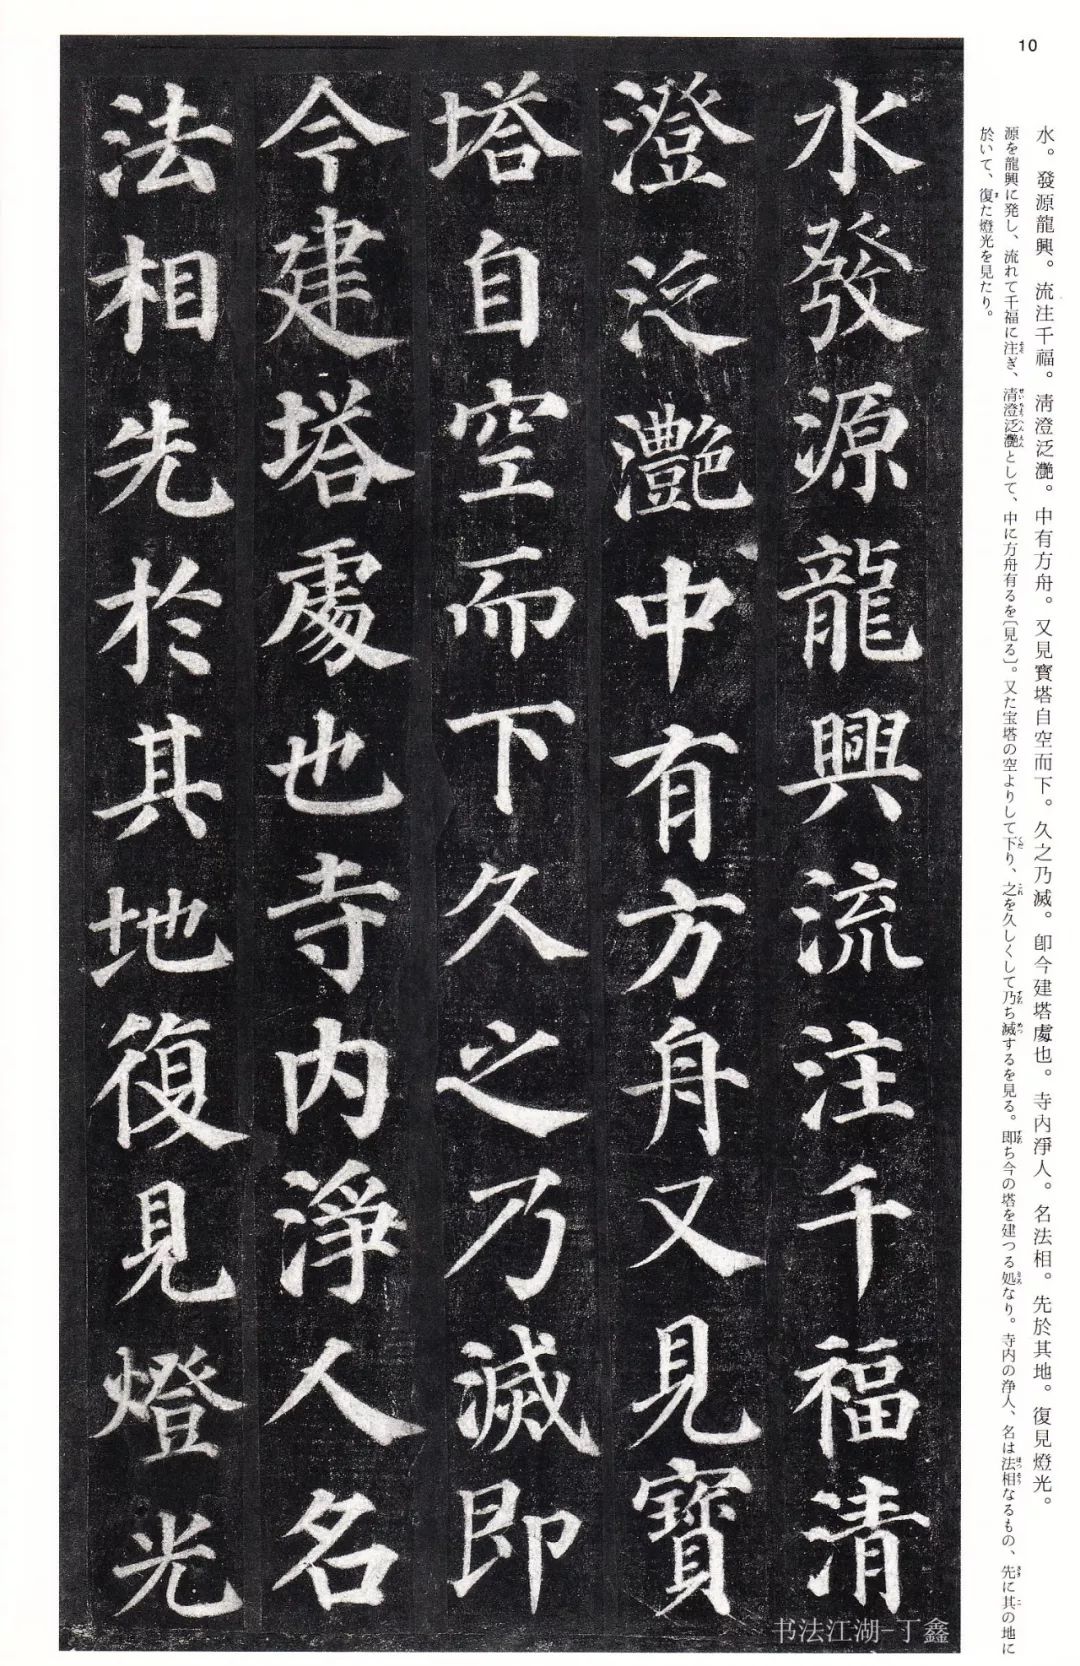 10
水。發源龍興。流注千福。淸澄泛灔。中有方舟。又見寳塔自空而下。久之乃滅。卽今建塔處也。寺內淨人。名法相。先於其地。復見燈光。
源を龍興に発し、流れて千福に注ぎ、清澄泛灔として、中に方舟有るを〔見る〕。又た宝塔の空よりして下り、之を久しくして乃ち滅するを見る。即ち今の塔を建つる処なり。寺内の浄人、名は法相なるもの、先に其の地に
於いて、復た燈光を見たり。
水發源龍興流注千福清
澄泛灔中有方舟又見寶
塔自空而下久之乃滅即
今建塔處也寺内淨人名
法相先於其地復見燈光
书法江湖-丁鑫